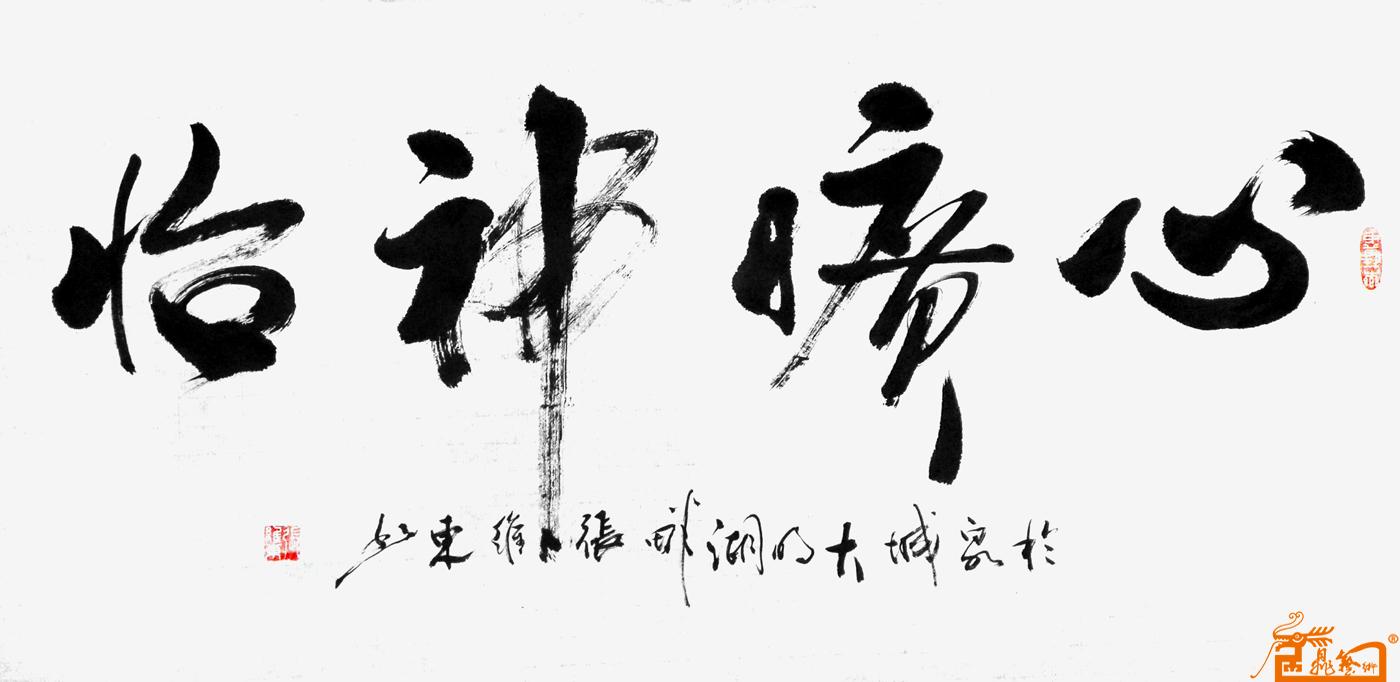 心曠神怡
於泉城大明湖畔張維東